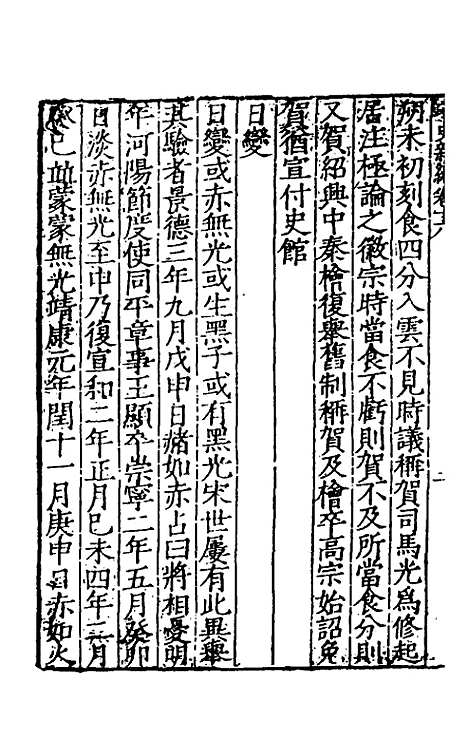 宋史新編卷十六
朔未初刻食四分入雲不見時議稱賀司馬光為修起
居注極論之徽宗時當食不虧則賀不及所當食分則
又賀紹興中秦檜復舉舊制稱賀及檜卒高宗始詔免
賀猶宣付史館
日變
日變或赤無光或生黑子或有黑光宋世屢有此異舉
其驗者景德三年九月戊申日赭如赤占曰將相憂明
年河陽節度使同平章事王顯卒崇寧二年五月癸卯
日淡赤無光至申乃復宣和二年正月己未四年二月
癸巳並蒙蒙無光靖康元年閏十一月庚申日赤如火